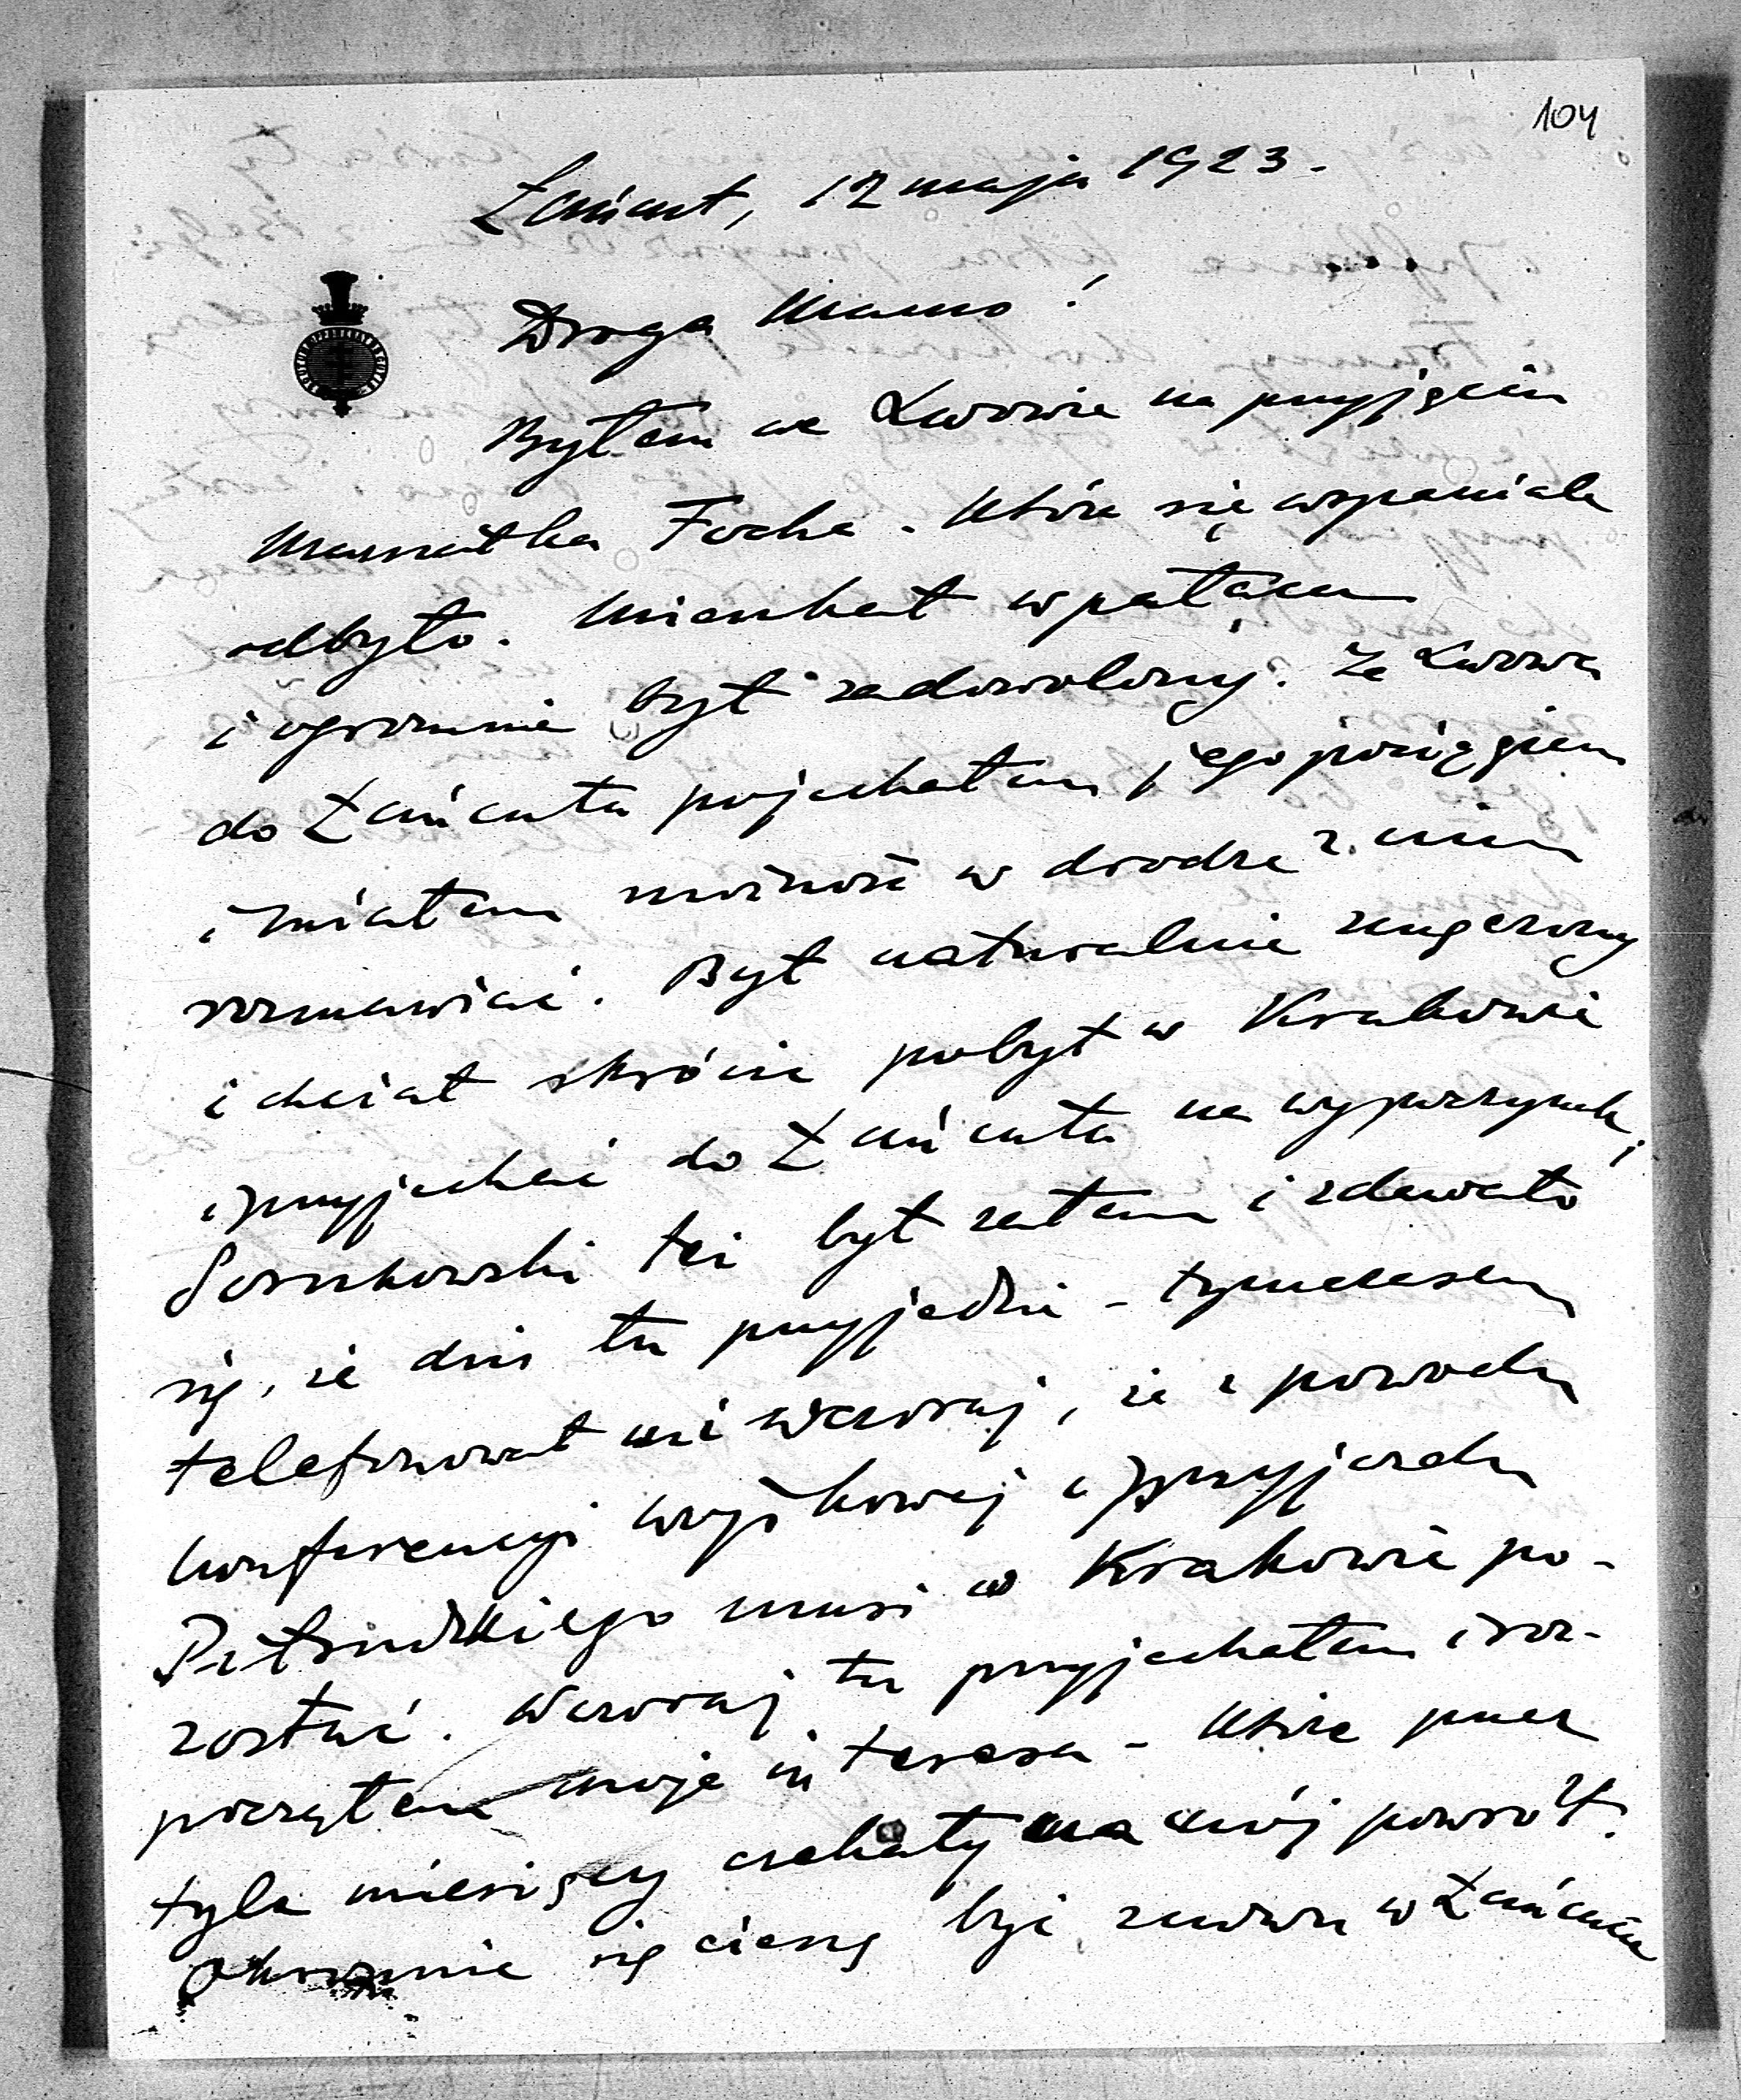 104
Łańcut, 12 maja 1923.
Droga Mamo!
Byłem we Lwowie na przyjęciu
Marszałka Focha. Które się wspaniale
odbyło. Mieszkał w pałacu
i ogromnie był zadowolony. Ze Lwowa
do Łańcuta pojechałem jego pociągiem
i miałem możność w drodze z nim
rozmawiać. Był naturalnie zmęczony
i chciał skrócić pobyt w Krakowie
i przyjechać do Łańcuta na wypoczynek,
Sosnkowski też był zatem i zdawało
się, że dziś tu przyjedzie - tymczasem
telefonował mi wczoraj, że z powodu
konferencyi wojskowej i przyjazdu
Piłsudskiego musi w Krakowie po-
zostać. Wczoraj tu przyjechałem i roz-
począłem moje interesa - które przez
tyle miesięcy czekały na mój powrót.
Okropnie się cieszę być znowu w Łańcucie